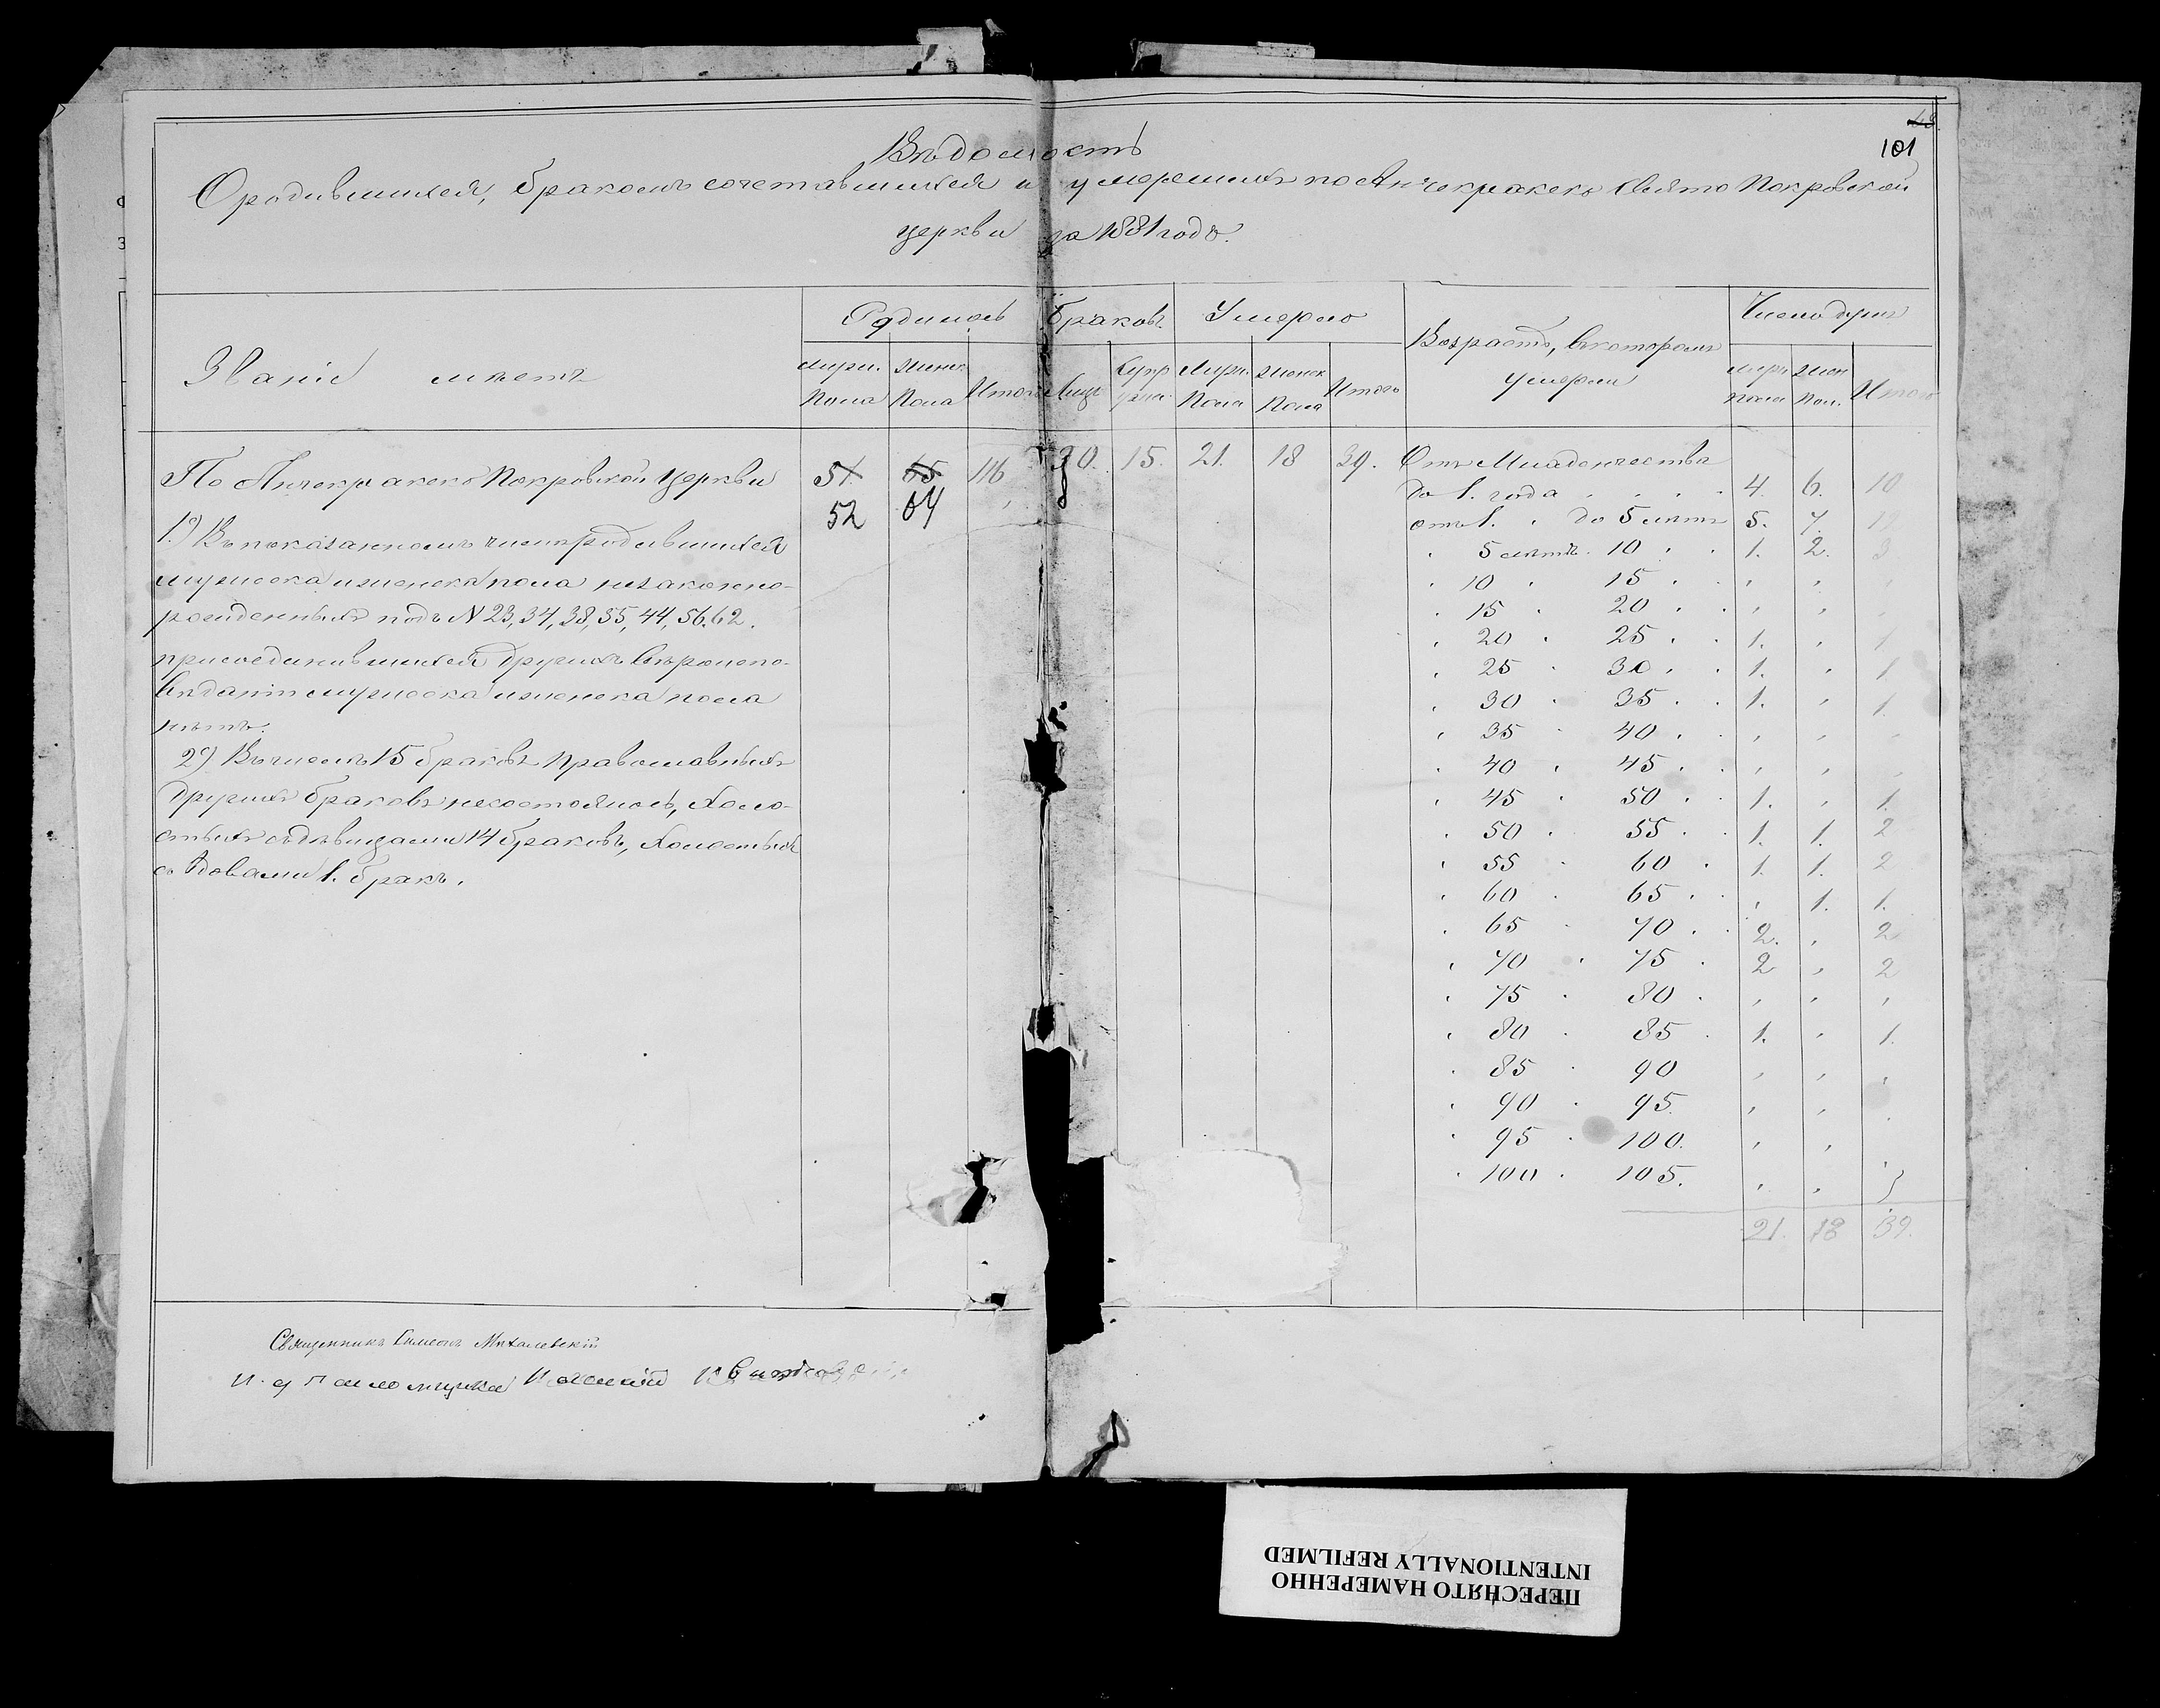 48
101
Вѣдомость
О родившихся, бракомъ сочетавшихся и умершихъ по Анчекракско Свято Покровской
церкви за 1881 годъ.
Званіе мѣстъ
Родилось
Браковъ
Умерло
Возрастъ, въ которомъ
умерли
Число душъ
Мужс. Пола
Женск. Пола
Итого
Лицъ
Супр
Мужс. Пола
Женск Пола
Итого
мужс пола
жен Пол.
Итого
По Анчекракско Покровской Церкви 51. 65 116 30. 15. 21. 18 39.
52 64
1.) Въ показанномъ числѣ родившихся
мужеска и женска пола незаконно-
рожденныхъ подъ N 23, 34, 38, 35, 44, 56. 62.
присоединившихся другихъ вѣроиспо-
вѣданій мужеска и женска пола
нѣтъ.
2) Въ числѣ 15 браковъ православныхъ
другихъ браковъ несостоялось, Холо-
стыхъ съ дѣвицами 14 браковъ, Холостыхъ
съ вдовами 1. бракъ.
Отъ Младенчества
до 1. года 4. 6. 10
отъ 1. до 5 лѣтъ 5. 7.
5 лѣтъ 10 1. 2. 3
10 15
15 20
20 25 1. 1
25 30 1. 1
30 35 1. 1.
35 40
40 45
45 50 1. 1.
50 55 1. 1. 2
55 60 1. 1. 2
60 65 1. 1.
65 70 2. 2
70 75 2 2
75 80
80 85 1. 1.
85 90
90 95.
95 100.
100 105.
21. 18 39.
Священникъ Симеонъ Михалевскій
И. д Псаломщика
ПЕРЕСНЯТО НАМЕРЕННО
INTENTIONALLY REFILMED